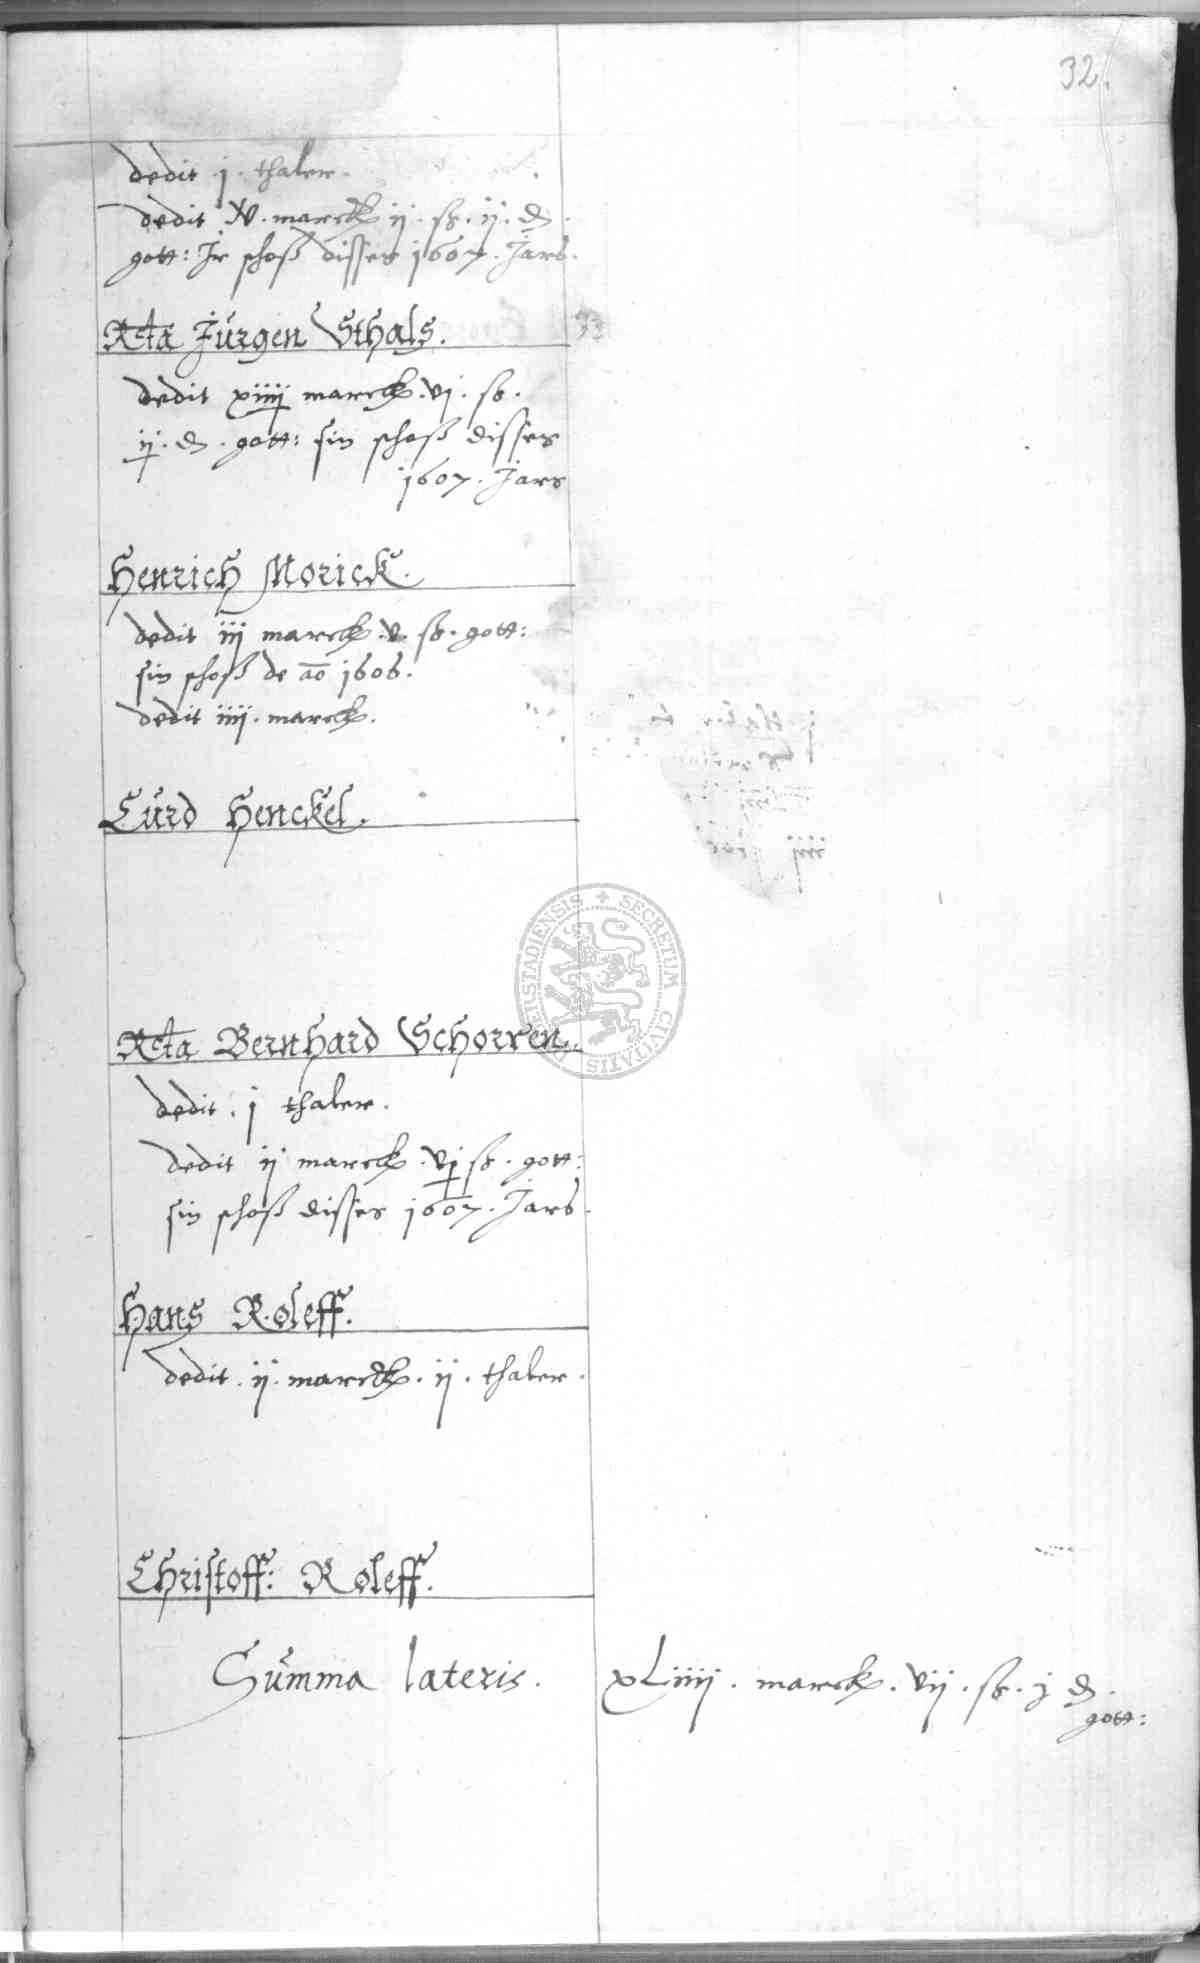 32.
dedit j. thaler.
dedit xv. marck ij. ß. ij. ₰.
gott: Jr schoß disses 1607. Jars.
Rcta Jürgen Sthals.
dedit xiiij marck. vj. ß.
ij. ₰. gott: sin schoß disses
1607. Jars
Henrich Morick.
dedit iij marck. v. ß. gott:
sin schoß de ao 1606.
dedit iiij. marck.
Curd Henckel.
SECRETUM CIVITATIS
Rcta Bernhard Schorren.
dedit. j thaler.
dedit ij marck. vj ß. gott:
sin schoß disses 1607. Jars.
Hans Roleff.
dedit. ij. marck. ij. thaler.
Christoff: Roleff.
Summa lateris. xLiiij. marck. vij. ß. j ₰.
gott: